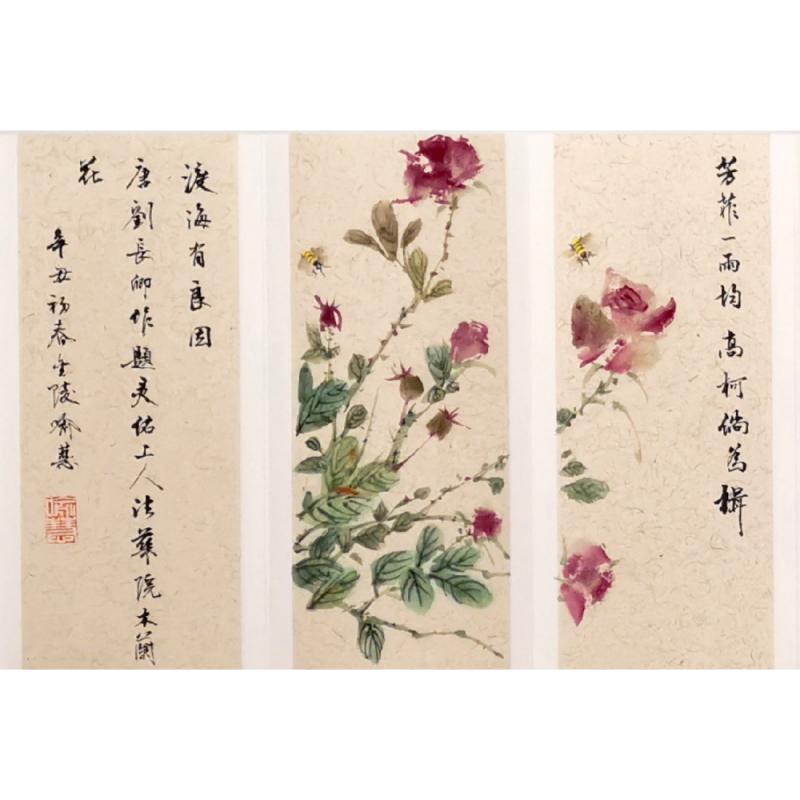 芳菲一雨均 高柯倘为楫
渡海有良因
唐劉長卿作題灵佑上人法華院木蘭
花
辛丑初春金陵喻慧
喻慧